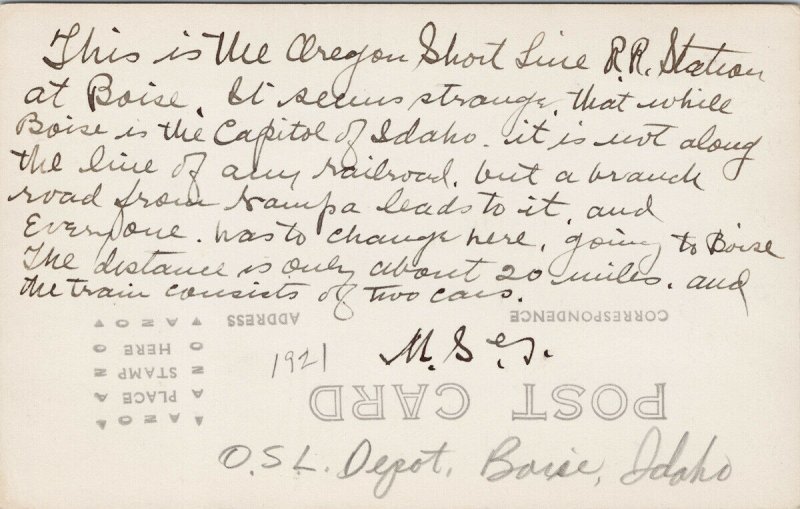 This is the Oregon Short Line R.R. Station
at Boise. It seems strange, that while
Boise is the Capitol of Idaho. it is not along
the line of any railroad. but a branch
road from Nampa leads to it, and
Everyone. has to change here, going to Boise
The distance is only about 20 miles. and
the train consists of two cars.
CORRESPONDENCE
ADDRESS
AZO
PLACE
STAMP
HERE
AZO
1921
POST CARD
O.S.L. Depot, Boise, Idaho